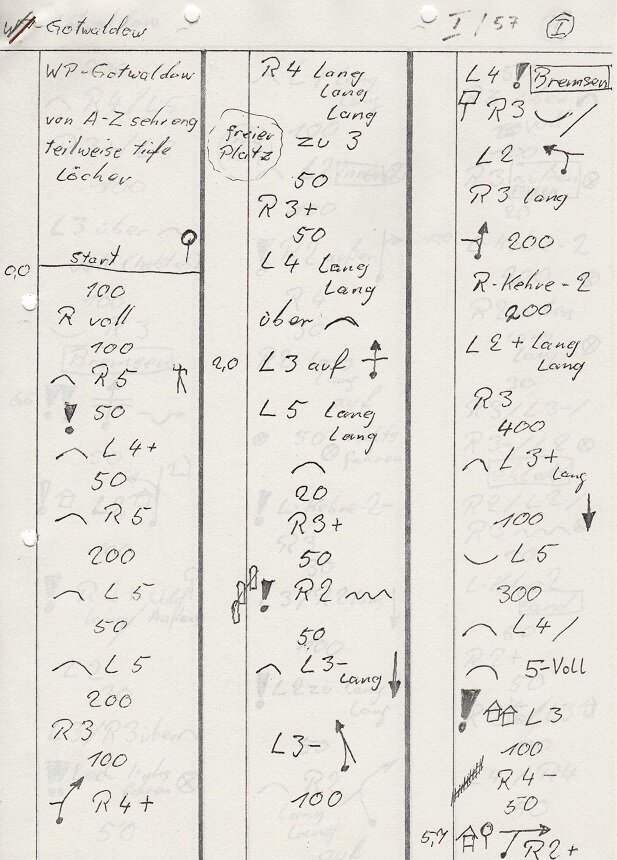 WP-Gotwaldow
I/57
I
WP-Gotwaldow
von A-Z sehr eng
teilweise tiefe
Löcher
0,0
Start
100
R voll
100
R5
! 50
L4+
50
R5
200
L5
50
L5
200
R3
100
R4+
R4 lang
lang
lang
freier
Platz
zu 3
50
R3+
50
L4 lang
lang
über
2,0
L3 auf
L5 lang
lang
20
R3+
50
! R2
50
L3-
lang
L3-
100
L4 ! Bremsen
R3 /
L2
R3 lang
200
R-Kehre-2
200
L2+ lang
lang
R3
400
L3+
lang
100
L5
300
L4/
5-Voll
! L3
100
R4-
50
5,7
R2+